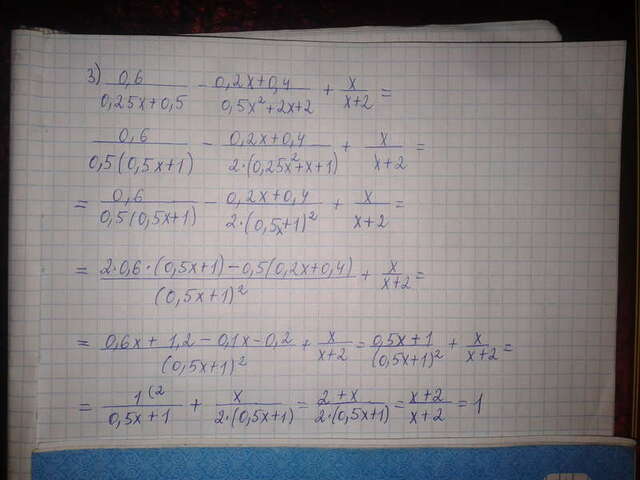 3) 0,6/(0,25x+0,5) - (0,2x+0,4)/(0,5x²+2x+2) + x/(x+2) =
0,6/(0,5(0,5x+1)) - (0,2x+0,4)/(2·(0,25x²+x+1)) + x/(x+2) =
= 0,6/(0,5(0,5x+1)) - (0,2x+0,4)/(2·(0,5x+1)²) + x/(x+2) =
= (2·0,6·(0,5x+1)-0,5(0,2x+0,4))/((0,5x+1)²) + x/(x+2) =
= (0,6x+1,2-0,1x-0,2)/((0,5x+1)²) + x/(x+2) = (0,5x+1)/((0,5x+1)²) + x/(x+2) =
= 1(2/(0,5x+1) + x/(2·(0,5x+1)) = (2+x)/(2·(0,5x+1)) = (x+2)/(x+2) = 1